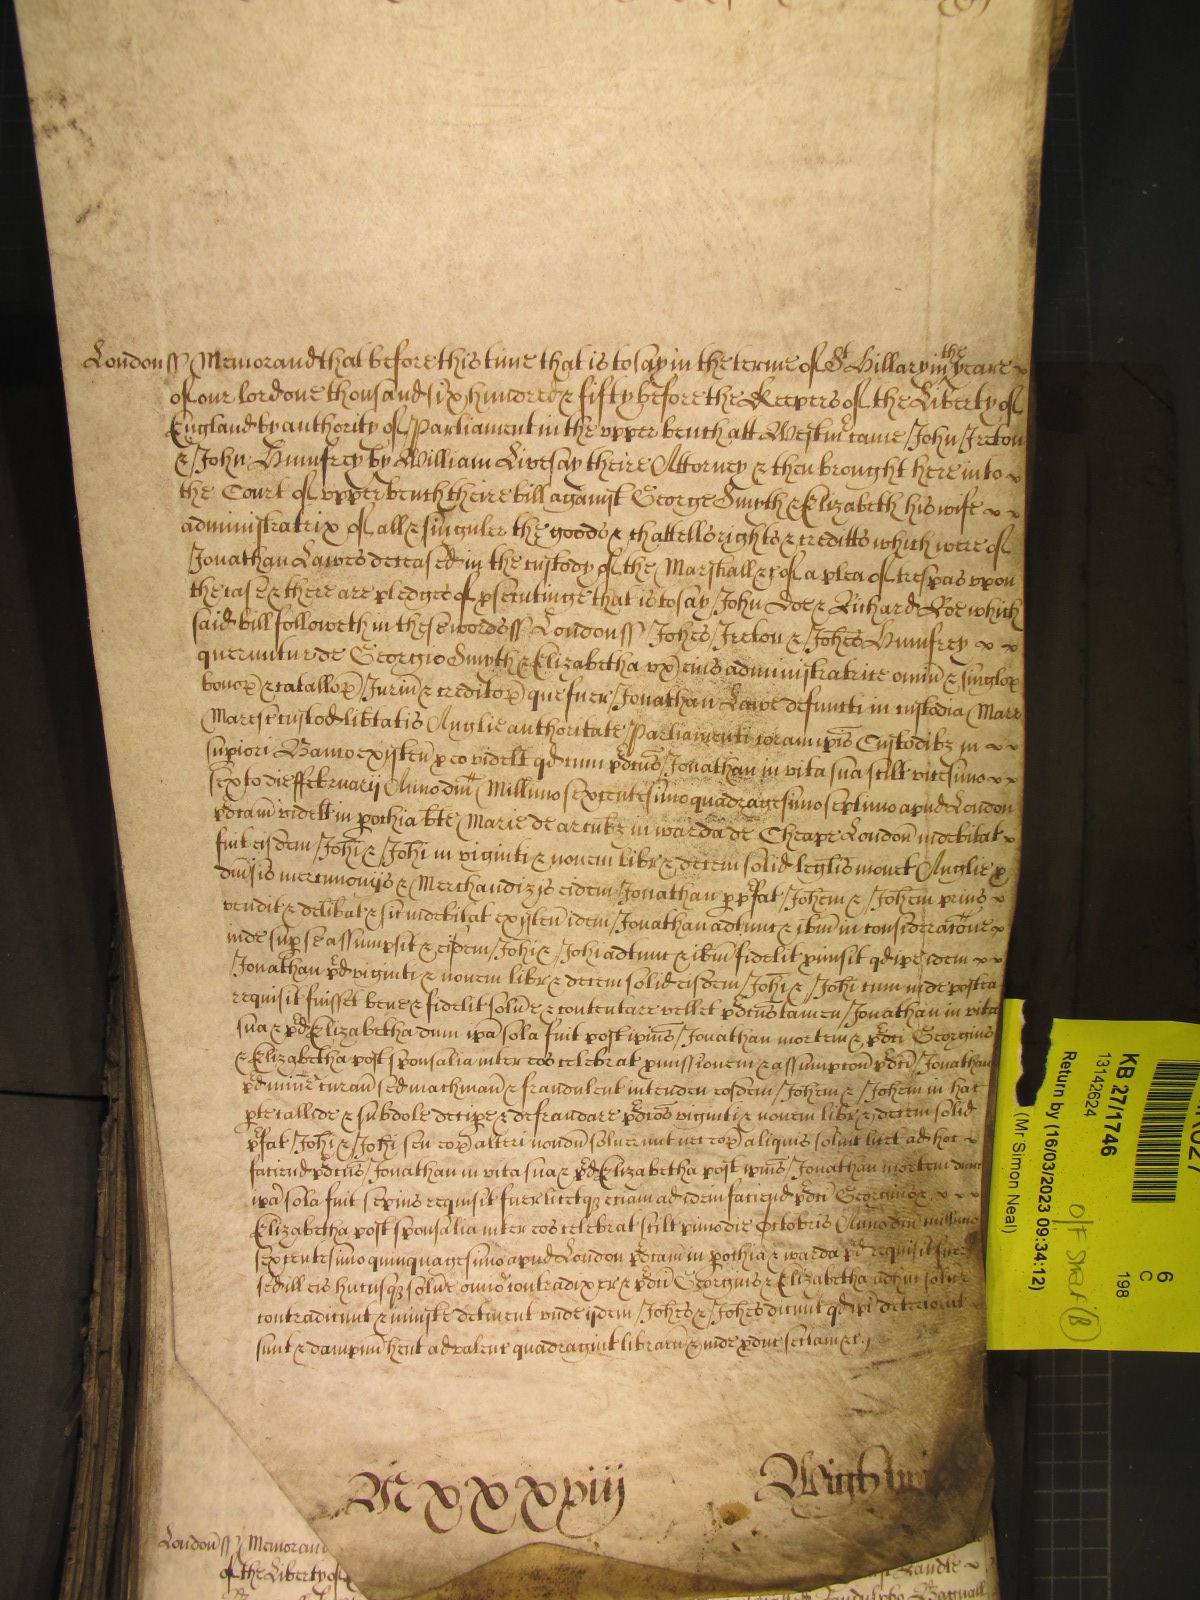 London ss Memorand that before this time that is to say in the terme of St Hillary in the yeare
of our lord one thousand six hundred & fifty before the Keepers of the Liberty of
England by authority of Parliament in the upper bench att Westmr came John Ireton
& John Humfrey by William Livesay theire Attorney & then brought here into
the Court of upper bench theire bill against George Smyth & Elizabeth his wife
administratrix of all & singuler the goods & chattells rights & creditts which were of
Jonathan Lawes deceased in the custody of the Marshall &c of a plea of trespas upon
the case & there are pledges of psecutinge that is to say John Doe & Richard Roe which
said bill followeth in these words ss London ss Johes Ireton & Johes Humfrey
queruntur de Georgio Smyth & Elizabetha ux eius administratrice omniu & singlor
bonor & catallor Jurium & creditor que fuer Jonathan Lawe defuncti in custodia Marr
Maresc custod libtatis Anglie authoritate Parliamenti coram ipis Custodibz in
supiori Banco existen p eo videlt qd cum pdcus Jonathan in vita sua scilt vicesimo
sexto die ffebruarij Anno dni Millimo sexcentesimo quadragesimo septimo apud London
pdcam videlt in pochia bte Marie de arcubz in warda de Cheape London indebitat
fuit eisdem Johi & Johi in viginti & novem libr & decem solid leglis monet Anglie p
divsis mercimonijs & Merchandizijs eidem Jonathan p pfat Johem & Johem prius
vendit & delibat & sic indebitat existen idem Jonathan adtunc & ibm in consideracone
inde sup se assumpsit & eisdem Johi & Johi adtunc & ibm fidelit pmisit qd ipe idem
Jonathan pd viginti & novem libr & decem solid eisdem Johi & Johi cum inde postea
requisit fuisset bene & fidelit solve & contentare vellet pdcus tamen Jonathan in vita
sua & pd Elizabetha dum ipa sola fuit post ipius Jonathan mortem & pdci Georgius
& Elizabetha post sponsalia inter eos celebrat pmissionem & assumpcon pdci Jonathan
pd minime curan sed machinan & fraudulent intenden eosdem Johem & Johem in hac
pte callide & subdole decipe & defraudare pdcas viginti & novem libr & decem solid
pfat Johi & Johi seu eor alteri nondu solverunt nec eor aliquis solvit licet ad hoc
faciend pdcus Jonathan in vita sua & pd Elizabetha post ipius Jonathan mortem dum
ipa sola fuit sepius requisit fuer licetqz etiam ad idem faciend pdci Georgius &
Elizabetha post sponsalia inter eos celebrat scilt primo die Octobris Anno dni millimo
sexcentesimo quinquagesimo apud London pdcam in pochia & warda pd requisit fuer
sed ill eis hucusqz solve omino contradixer & pdci Georgius & Elizabetha adhuc solve
contradicunt & iniuste detinent unde ijdem Johes & Johes dicunt qd ipi deteriorat
sunt & dampnu hent ad valenc quadragint librar & inde pduc sectam &c
M xxxxviij Wighte
London ss Memorand
of the Liberty of
KB 27/1746
13142624
Return by (16/03/2023 09:34:12)
(Mr Simon Neal)
6
C
198
O/F Shelf (B)